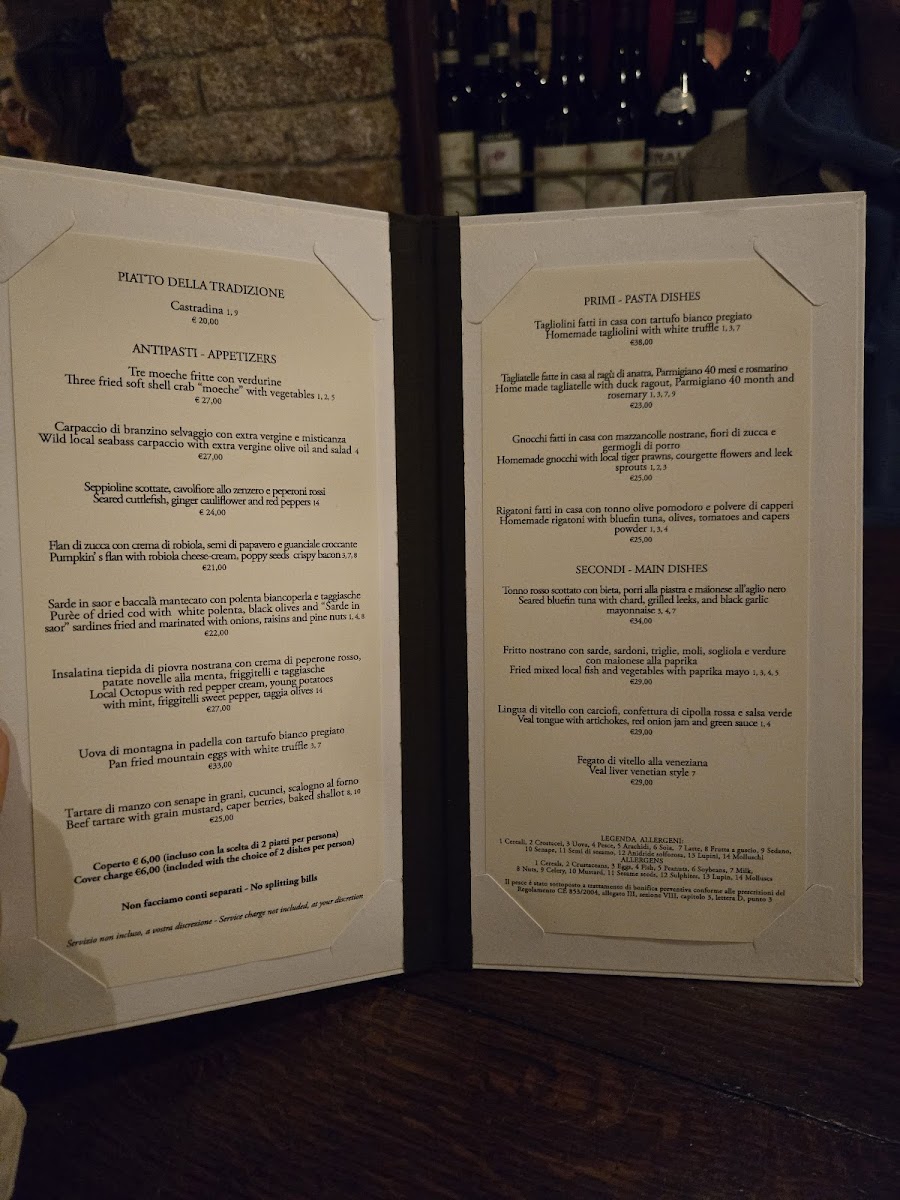 PIATTO DELLA TRADIZIONE
Castradina 1, 9
€ 20,00
ANTIPASTI - APPETIZERS
Tre moeche fritte con verdurine
Three fried soft shell crab "moeche" with vegetables 1, 2, 5
€ 27,00
Carpaccio di branzino selvaggio con extra vergine e misticanza
Wild local seabass carpaccio with extra vergine olive oil and salad 4
€27,00
Seppioline scottate, cavolfiore allo zenzero e peperoni rossi
Seared cuttlefish, ginger cauliflower and red peppers 14
€ 24,00
Flan di zucca con crema di robiola, semi di papavero e guanciale croccante
Pumpkin' s flan with robiola cheese-cream, poppy seeds crispy bacon 3, 7, 8
€21,00
Sarde in saor e baccalà mantecato con polenta biancoperla e taggiasche
Purèe of dried cod with white polenta, black olives and "Sarde in
saor" sardines fried and marinated with onions, raisins and pine nuts 1, 4, 8
€22,00
Insalatina tiepida di piovra nostrana con crema di peperone rosso,
patate novelle alla menta, friggitelli e taggiasche
Local Octopus with red pepper cream, young potatoes
with mint, friggitelli sweet pepper, taggia olives 14
€27,00
Uova di montagna in padella con tartufo bianco pregiato
Pan fried mountain eggs with white truffle 3, 7
€33,00
Tartare di manzo con senape in grani, cucunci, scalogno al forno
Beef tartare with grain mustard, caper berries, baked shallot 8, 10
€25,00
Coperto € 6,00 (incluso con la scelta di 2 piatti per persona)
Cover charge €6,00 (included with the choice of 2 dishes per person)
Non facciamo conti separati - No splitting bills
Servizio non incluso, a vostra discrezione - Service charge not included, at your discretion
PRIMI - PASTA DISHES
Tagliolini fatti in casa con tartufo bianco pregiato
Homemade tagliolini with white truffle 1, 3, 7
€38,00
Tagliatelle fatte in casa al ragù di anatra, Parmigiano 40 mesi e rosmarino
Home made tagliatelle with duck ragout, Parmigiano 40 month and
rosemary 1, 3, 7, 9
€23,00
Gnocchi fatti in casa con mazzancolle nostrane, fiori di zucca e
germogli di porro
Homemade gnocchi with local tiger prawns, courgette flowers and leek
sprouts 1, 2, 3
€25,00
Rigatoni fatti in casa con tonno olive pomodoro e polvere di capperi
Homemade rigatoni with bluefin tuna, olives, tomatoes and capers
powder 1, 3, 4
€25,00
SECONDI - MAIN DISHES
Tonno rosso scottato con bieta, porri alla piastra e maionese all'aglio nero
Seared bluefin tuna with chard, grilled leeks, and black garlic
mayonnaise 3, 4, 7
€34,00
Fritto nostrano con sarde, sardoni, triglie, moli, sogliola e verdure
con maionese alla paprika
Fried mixed local fish and vegetables with paprika mayo 1, 3, 4, 5
€29,00
Lingua di vitello con carciofi, confettura di cipolla rossa e salsa verde
Veal tongue with artichokes, red onion jam and green sauce 1, 4
€29,00
Fegato di vitello alla veneziana
Veal liver venetian style 7
€29,00
LEGENDA ALLERGENI:
1 Cereali, 2 Crostacei, 3 Uova, 4 Pesce, 5 Arachidi, 6 Soia, 7 Latte, 8 Frutta a guscio, 9 Sedano,
10 Senape, 11 Semi di sesamo, 12 Anidride solforosa, 13 Lupini, 14 Molluschi
ALLERGENS
1 Cereals, 2 Crustaceans, 3 Eggs, 4 Fish, 5 Peanuts, 6 Soybeans, 7 Milk,
8 Nuts, 9 Celery, 10 Mustard, 11 Sesame seeds, 12 Sulphites, 13 Lupin, 14 Molluscs
Il pesce è stato sottoposto a trattamento di bonifica preventiva conforme alle prescrizioni del
Regolamento CE 853/2004, allegato III, sezione VIII, capitolo 3, lettera D, punto 3